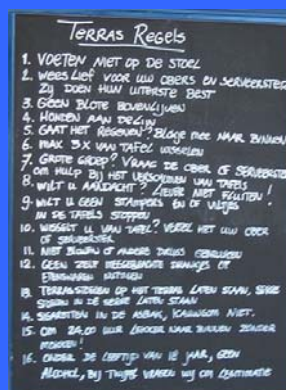 Terras Regels
1. VOETEN NIET OP DE STOEL
2. WEES LIEF VOOR UW OBERS EN SERVEERSTER
ZIJ DOEN HUN UITERSTE BEST
3. GEEN BLOTE BOVENLIJVEN
4. HONDEN AAN DE LIJN
5. GAAT HET REGENEN? BLOKJE MEE NAAR BINNEN
6. MAX 3X VAN TAFEL WISSELEN
7. GROTE GROEP? VRAAG DE OBER OF SERVEERSTER
OM HULP BIJ HET VERSCHUIVEN VAN TAFELS
8. WILT U AANDACHT? LIEVER NIET FLUITEN!
9. WILT U GEEN STAMPERS EN OF VILTJES
IN DE TAFELS STOPPEN
10. WISSELT U VAN TAFEL? VERTEL HET UW OBER
OF SERVEERSTER
11. NIET BLOWEN OF ANDERE DRUGS GEBRUIKEN
12. GEEN ZELF MEEGEBRACHTE DRANKJES OF
ETENSWAREN NUTTIGEN
13. TERRASSTOELEN OP HET TERRAS LATEN STAAN, SERRE
STOELEN IN DE SERRE LATEN STAAN
14. SIGARETTEN IN DE ASBAK, KAUWGOM NIET.
15. OM 24.00 UUR LEKKER NAAR BINNEN ZONDER
MOKKEN!
16. ONDER DE LEEFTIJD VAN 18 JAAR, GEEN
ALCOHOL, BIJ TWIJFEL VRAGEN WIJ OM LEGITIMATIE